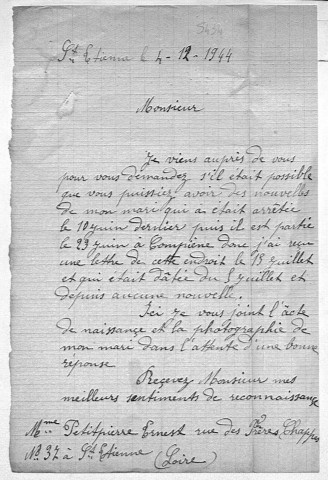 St Etienne le 4-12-1944
Monsieur
Je viens auprès de vous
pour vous demandez s'il était possible
que vous puissiez avoir des nouvelles
de mon mari qui a était arrêtée
le 10 juin dernier puis il est partie
le 29 juin à Compiène donc j'ai reçu
une lettre de cette endroit le 18 juillet
et qui était dâtée du 5 juillet et
depuis aucune nouvelle.
Ici je vous joint l'äcte
de naissance et la photographie de
mon mari dans l'attente d'une bonne
réponse
Recevez Monsieur mes
meilleurs sentiments de reconnaissance
Mme Petitpierre Ernest rue des Frères Chappe
No 37 à St Etienne
(Loire)